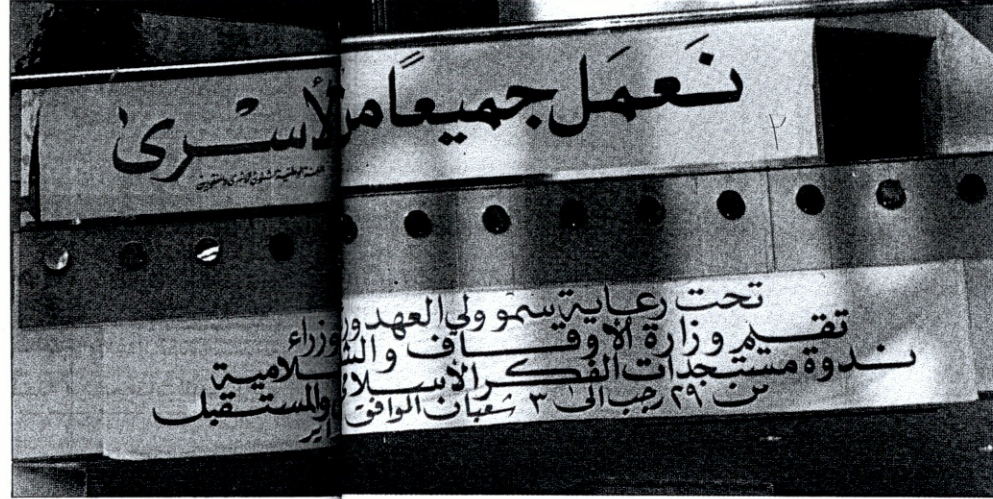 نَعمَل جميعًا من لأسْرىٰ
اللجنة الوطنية لشئون الأسرى والمفقودين
٢
تحت رعاية سمو ولي العهد ور وزراء
تقيم وزارة الأوقاف والش لامية
ندوة مستجدات الفكر الاسلامي والمستقبل
من ٢٩ رجب الى ٣ شعبان الموافق